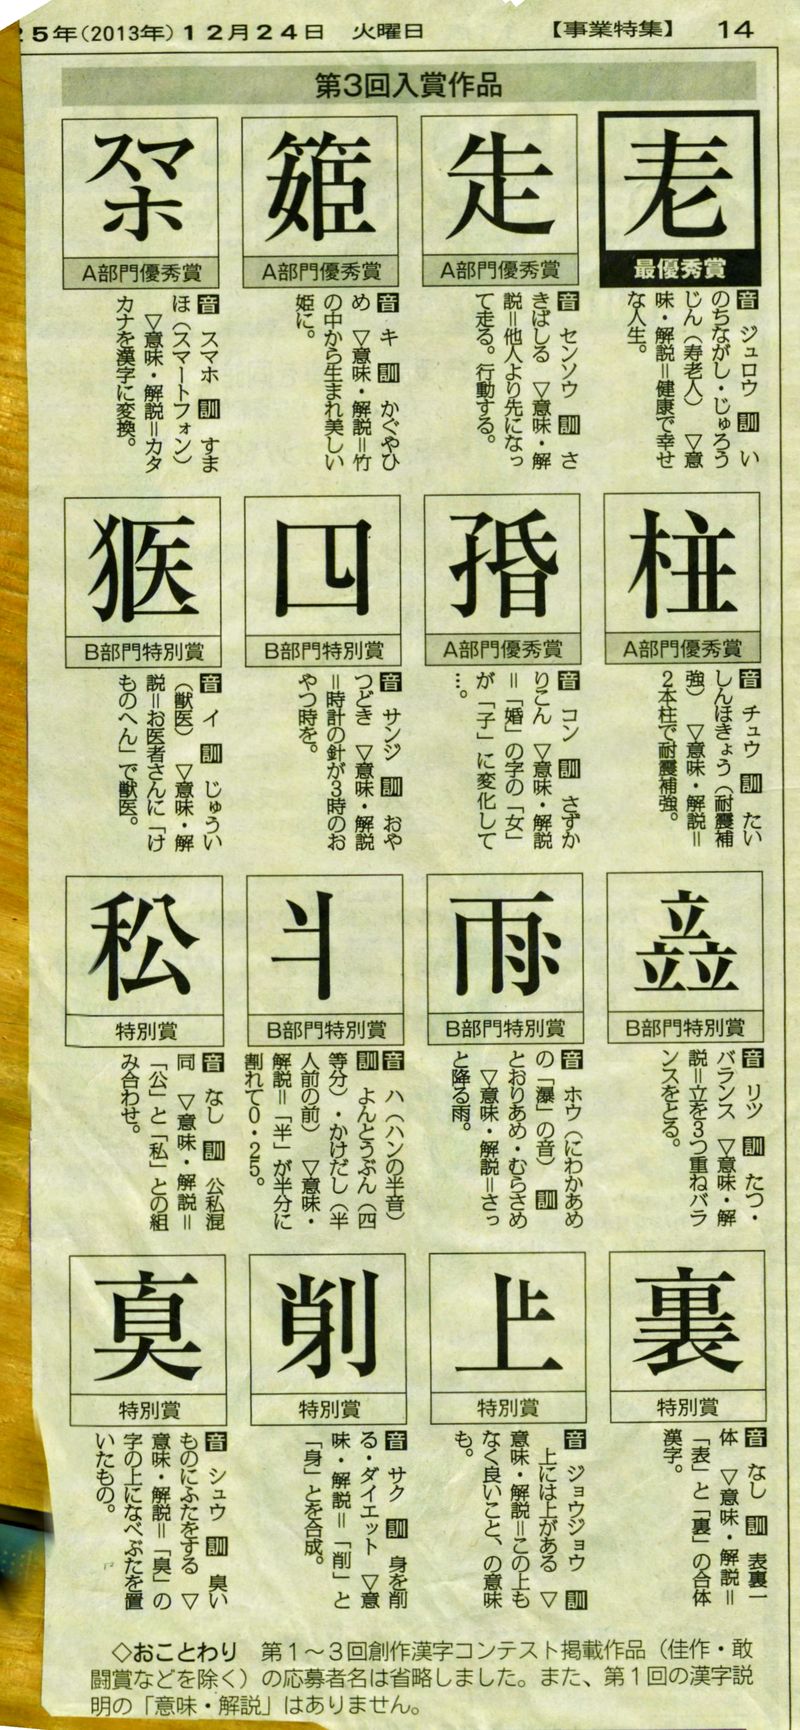 25年(2013年)12月24日　火曜日　【事業特集】　14
第3回入賞作品
最優秀賞
音　ジュロウ　訓　い
のちながし・じゅろう
じん（寿老人）　▽意
味・解説＝健康で幸せ
な人生。
A部門優秀賞
音　センソウ　訓　さ
きばしる　▽意味・解
説＝他人より先になっ
て走る。行動する。
A部門優秀賞
音　キ　訓　かぐやひ
め　▽意味・解説＝竹
の中から生まれ美しい
姫に。
A部門優秀賞
音　スマホ　訓　すま
ほ（スマートフォン）
▽意味・解説＝カタ
カナを漢字に変換。
A部門優秀賞
音　チュウ　訓　たい
しんほきょう（耐震補
強）　▽意味・解説＝
2本柱で耐震補強。
A部門優秀賞
音　コン　訓　さずか
りこん　▽意味・解説
＝「婚」の字の「女」
が「子」に変化して
…。
B部門特別賞
音　サンジ　訓　おや
つどき　▽意味・解説
＝時計の針が3時のお
やつ時を。
B部門特別賞
音　イ　訓　じゅうい
（獣医）　▽意味・解
説＝お医者さんに「け
ものへん」で獣医。
B部門特別賞
音　リツ　訓　たつ・
バランス　▽意味・解
説＝立を3つ重ねバラ
ンスをとる。
B部門特別賞
音　ホウ（にわかあめ
の「瀑」の音）　訓
とおりあめ・むらさめ
▽意味・解説＝さっ
と降る雨。
B部門特別賞
音　ハ（ハンの半音）
訓　よんとうぶん（四
等分）・かけだし（半
人前の前）　▽意味・
解説＝「半」が半分に
割れて0・25。
特別賞
音　なし　訓　公私混
同　▽意味・解説＝
「公」と「私」との組
み合わせ。
特別賞
音　なし　訓　表裏一
体　▽意味・解説＝
「表」と「裏」の合体
漢字。
特別賞
音　ジョウジョウ　訓
上には上がある　▽
意味・解説＝この上も
なく良いこと、の意味
も。
特別賞
音　サク　訓　身を削
る・ダイエット　▽意
味・解説＝「削」と
「身」とを合成。
特別賞
音　シュウ　訓　臭い
ものにふたをする　▽
意味・解説＝「臭」の
字の上になべぶたを置
いたもの。
◇おことわり　第1〜3回創作漢字コンテスト掲載作品（佳作・敢
闘賞などを除く）の応募者名は省略しました。また、第1回の漢字説
明の「意味・解説」はありません。